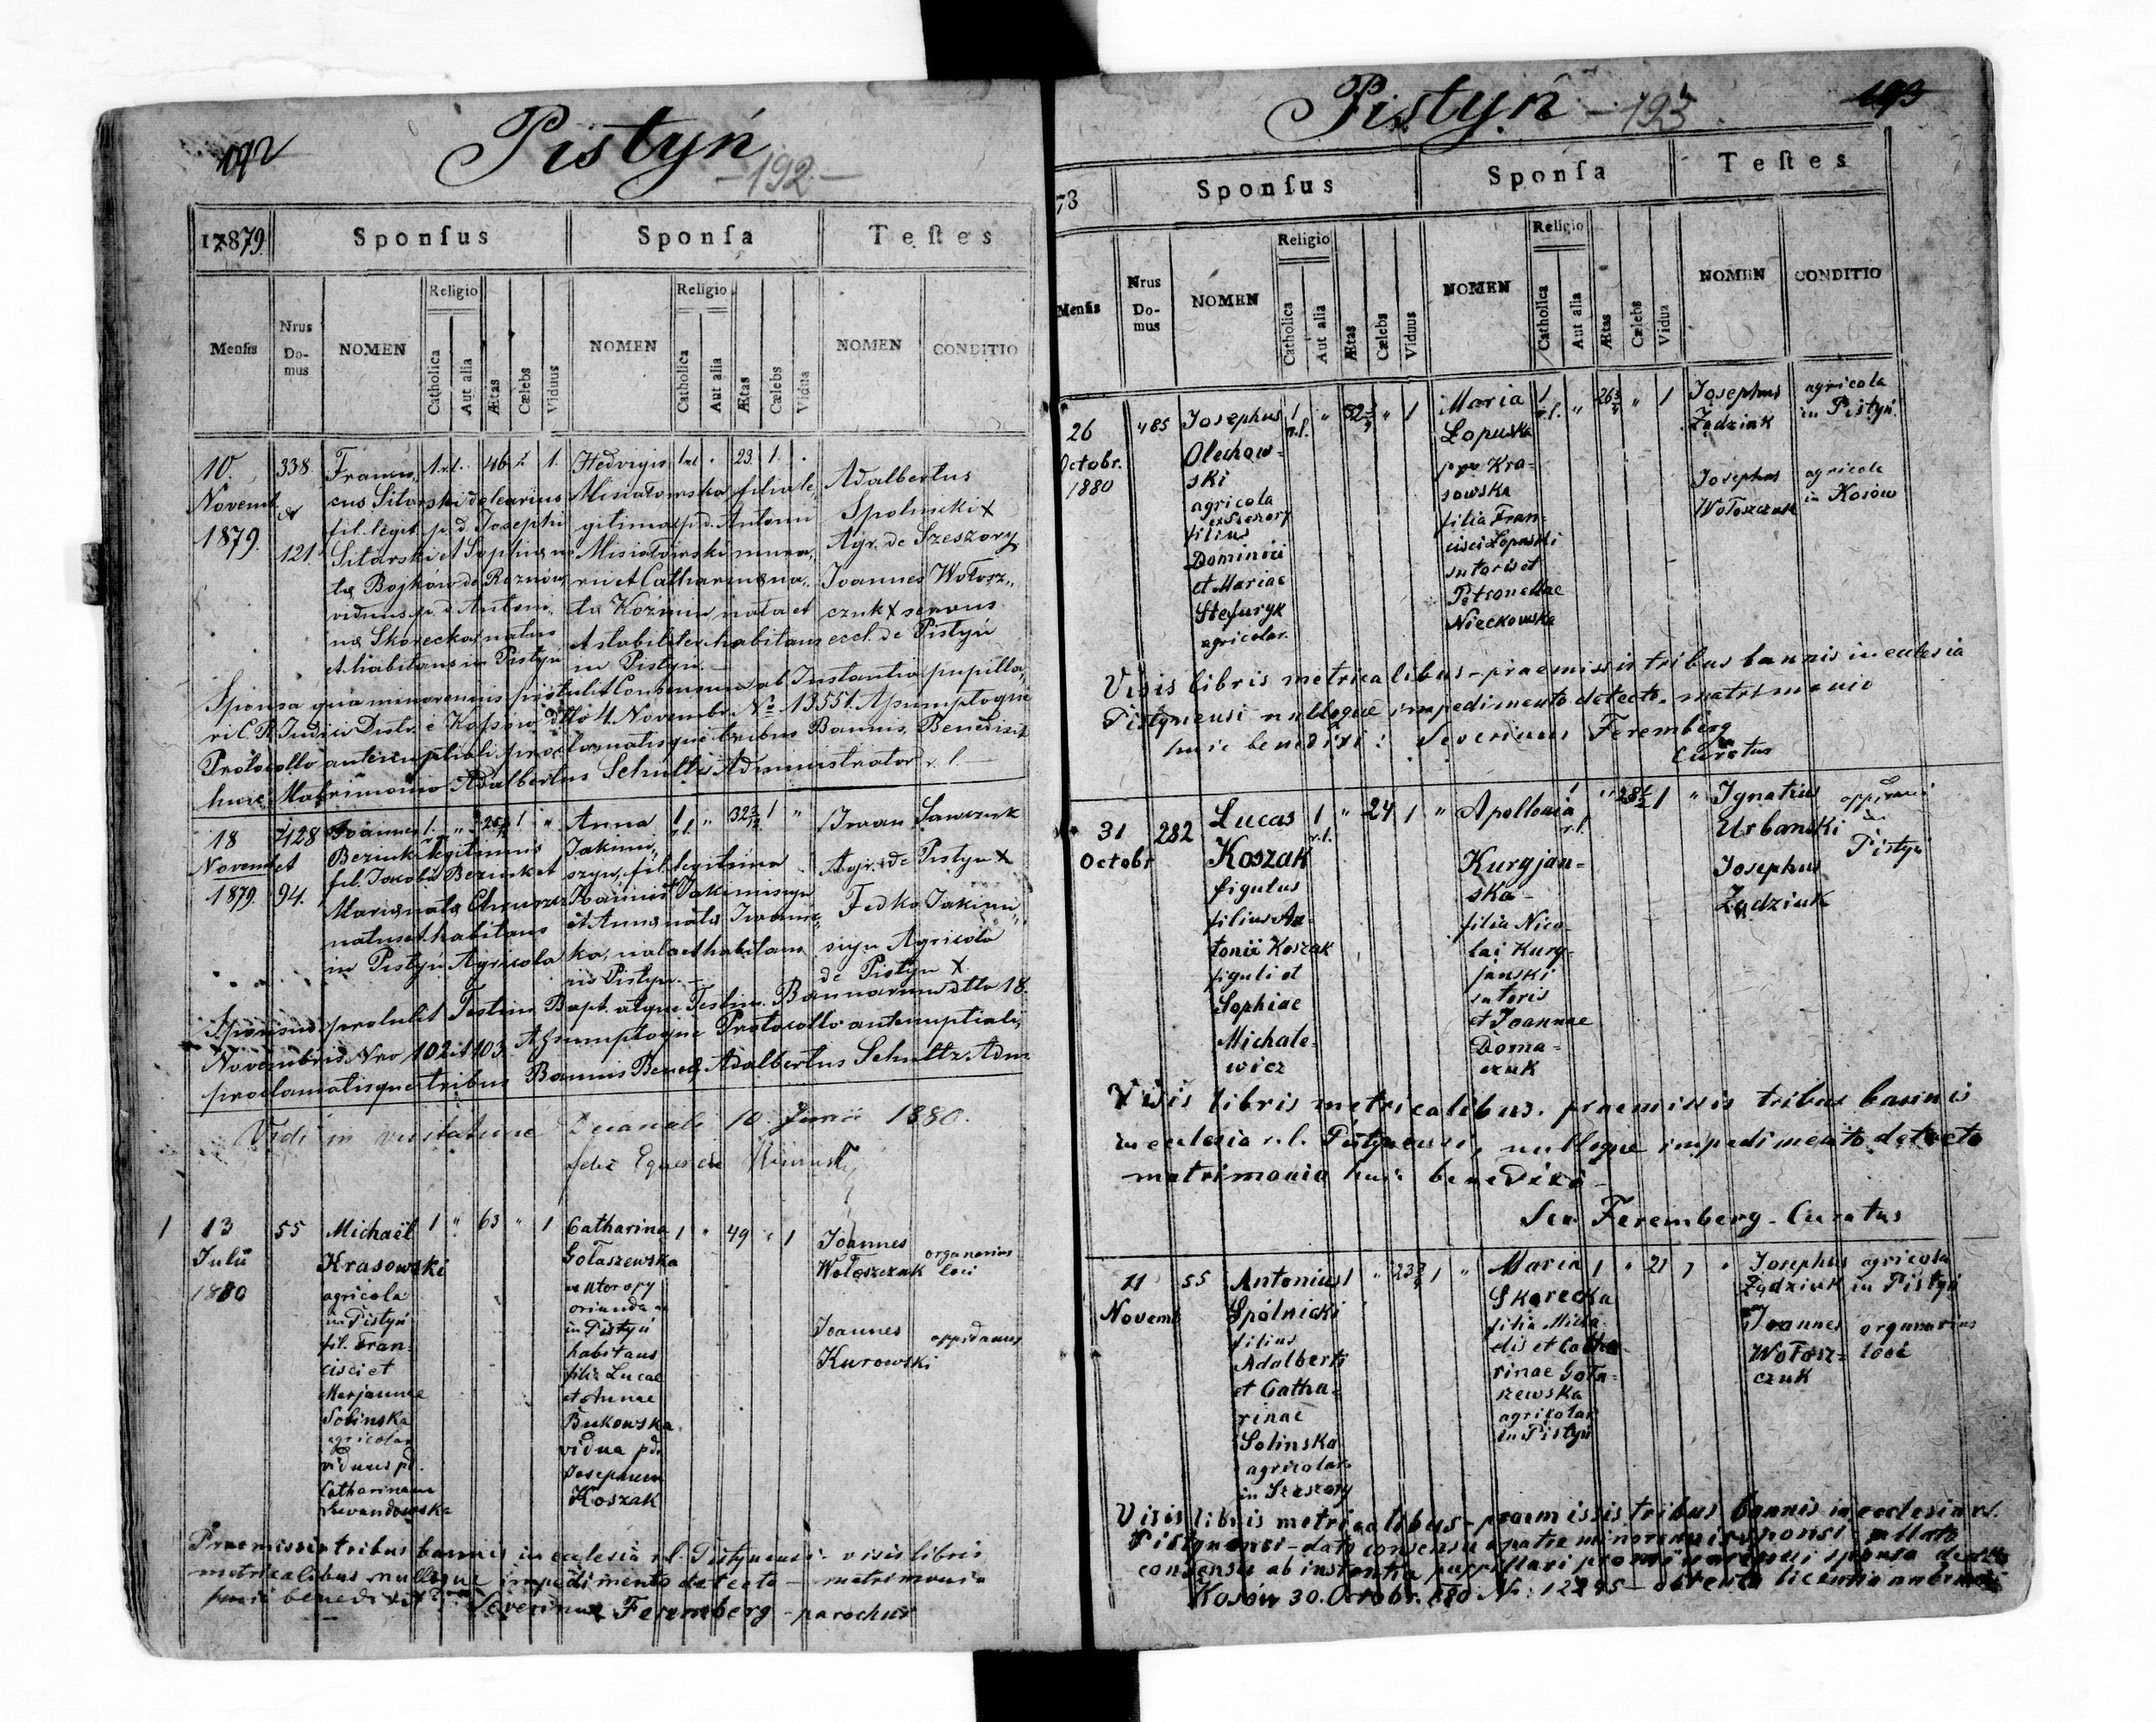 192
Pistyń
- 192 -
1879.
Sponſus
Sponſa
Teſtes
Menſis
Nrus Domus
NOMEN
Religio
Catholica
Aut alia
Ætas
Cælebs
Viduus
NOMEN
Religio
Catholica
Aut alia
Ætas
Cælebs
Vidua
NOMEN
CONDITIO
10.
Novemb
1879.
338
et
121.
Francis-
cus Sitarski dolearius
fil. legit. p. d. Josephi
Sitarski et Sophiæ na-
tæ Bojków de Roznów,
viduus p. d. Antoni-
na Skorecka, natus
et habitans in Pistyń
1 r.l. 46 1.
Hedvigis
Misiatowska filia le-
gitima p. d. Antonii
Misiatowski mura-
rii et Catharinæ na-
tæ Koźmin, nata et
stabiliter habitans
in Pistyn. —
1 r.l. 23. 1.
Adalbertus
Spolnicki X
Agr. de Szeszory
Joannes Wołosz-
czuk X servus
eccl. de Pistyń
Sponsa qua minorennis protulit Consensum ab Instantia pupilla-
ri C. R. Judicii Distr. e Kossow dtto 4. Novembr. No 13551. Assumptoque
Protocollo antenuptiali proclamatisque tribus Bannis Benedixit
huic Matrimonio Adalbertus Schultz Administrator r. l. —
18
Novemb
1879.
428
et
94.
Joannes
Beziuk legitimus
fil. Jacobi Beziuk et
Mariæ natæ
natus et habitans
in Pistyń Agricola
Anna
Jakimi-
szyn, fil. legitima
Joannis Jakimiszyn
et Annæ natæ Iwani-
ka, nata et habitans
in Pistyn. —
1 r.l. " 32 1 "
Iwan Sawczuk
Agr. de Pistyn X
Fedko Jakimi-
szyn Agricola
de Pistyn X.
Sponsus protulit Testim. Bapt. atque Testim. Bannorum dtto 18.
Novembris Nro 102 et 103. Assumptoque Protocollo antenuptiali,
proclamatisque tribus Bannis Bened. Adalbertus Schultz Adm.
Vidi in visitatione Decanali 10. Junii 1880.
1
13
Julii
1880
55
Michaël
Krasowski
agricola
in Pistyń
fil. Fran-
cisci et
Marjannae
Solinska
agricolar.
viduus pd.
Catharinam
Lewandowska
1 " 63 " 1
Catharina
Gołaszewska
ex Utoropy
oriunda
in Pistyń
habitans
filia Lucae
et Annae
Bukowska
vidua pd.
Josephum
Koszak
1 " 49 " 1
Joannes
Wołoszczuk
organarius
loci
Joannes
Kurowski
oppidanus
Praemissis tribus bannis in ecclesia r.l. Pistynensi - visis libris
metricalibus nulloque impedimento detecto - matrimonio
huic benedixit Severinus Feremberg - parochus
Pistyn
- 193
193
73
Sponſus
Sponſa
Teſtes
Menſis
Nrus Domus
NOMEN
Religio
Catholica
Aut alia
Ætas
Cælebs
Viduus
NOMEN
Religio
Catholica
Aut alia
Ætas
Cælebs
Vidua
NOMEN
CONDITIO
26
Octobr.
1880
485
Josephus
Olechow-
ski
agricola
ex Szeszory
filius
Dominici
et Mariae
Stefuryk
agricolar.
1 r.l. " 52 " 1
Maria
Łopuska
Kra-
sowska
filia Fran-
cisci Łopuski
sutoris et
Petronellae
Nieckowska
1 r.l. " 26 " 1
Josephus
Żądziuk
agricola
in Pistyń
Josephus
Wołoszczuk
agricola
in Kosów
Visis libris metricalibus - praemissis tribus bannis in ecclesia
Pistynensi nulloque impedimento detecto. matrimonio
huic benedixi: Severinus Feremberg
Curatus
31
Octobr
282
Lucas
Koszak
figulus
filius An-
tonii Koszak
figuli et
Sophiae
Michale-
wicz
1 r.l. " 24 1 "
Apollonia
Kurgjan-
ska -
filia Nico-
lai Kurg-
janski
sutoris
et Joannae
Doma-
czuk
1 r.l. " 28½ 1 "
Ignatius
Urbanski
Josephus
Żądziuk
oppidani
in
Pistyń
Visis libris metricalibus. praemissis tribus bannis
in ecclesia r.l. Pistynensi, nulloque impedimento detecto
matrimonio huic benedixi -
Sev. Feremberg - Curatus
21
Novemb
55
Antonius
Spólnicki
filius
Adalberti
et Catha-
rinae
Solinska
agricolar.
in Szeszory
1 " 23 1 "
Maria
Skorecka
filia Micha-
elis et Catha-
rinae Goła-
szewska
agricolar
in Pistyń
1 " 21 1 "
Josephus
Żądziuk
agricola
in Pistyń
Joannes
Wołosz-
czuk
organarius
loci
Visis libris metricalibus - praemissis tribus bannis in ecclesia r.l.
Pistynensi - dato consensu a patre minorennis sponsi -
consensu ab instantia pupillari pro minorenni sponsa
Kosów 30. Octobr. 880 Nr. 12295 - obtenta licentia